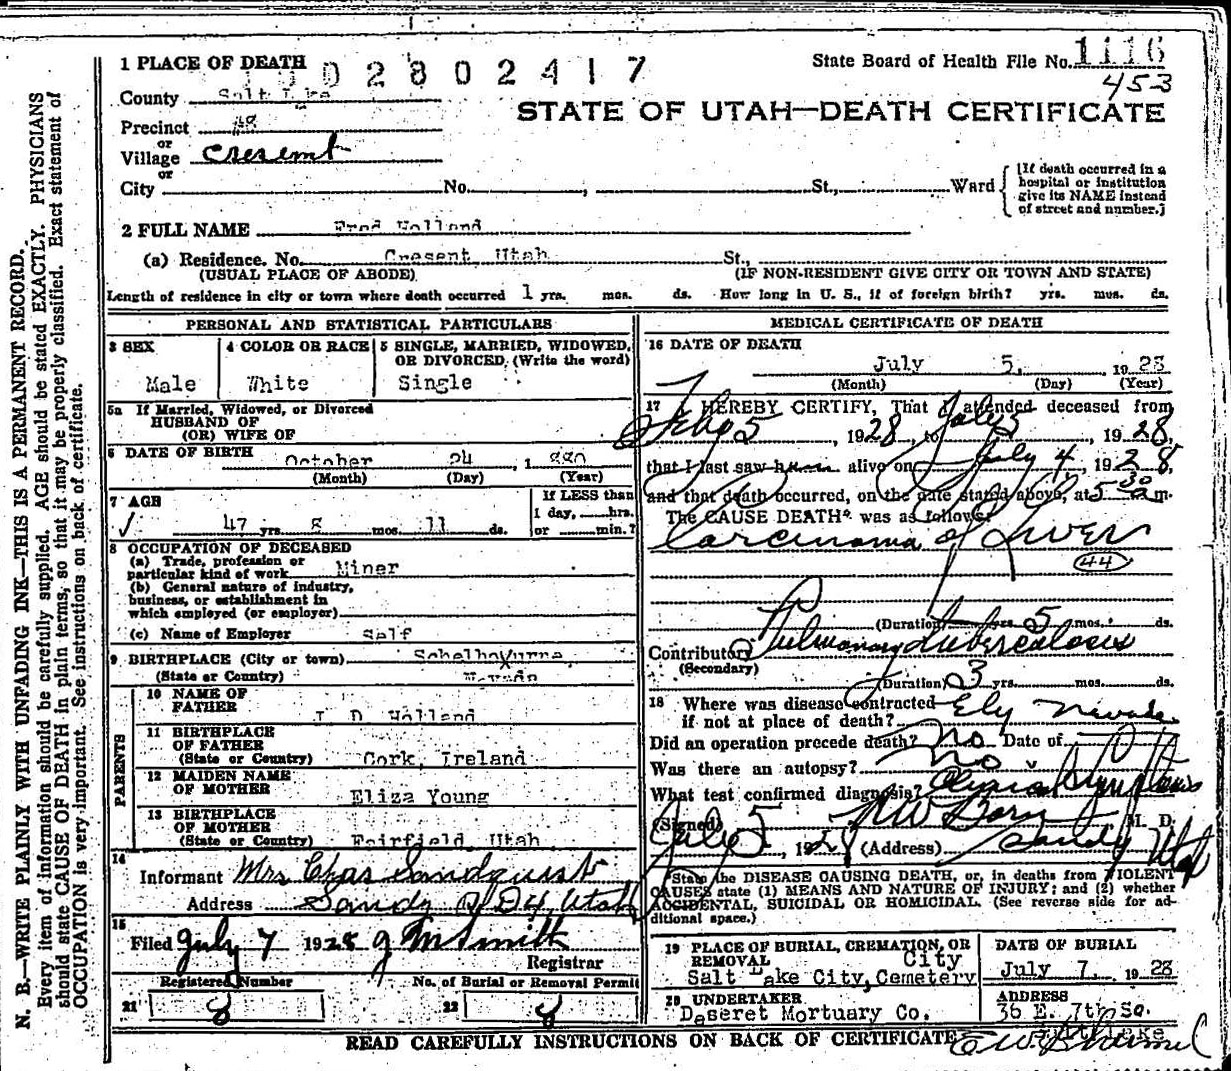 1 PLACE OF DEATH
D 0 2 8 0 2 4 1 7
State Board of Health File No. 1116
453
County Salt Lake
STATE OF UTAH—DEATH CERTIFICATE
Precinct #8
or
Village Cresent
or
City No. , St., Ward
[If death occurred in a hospital or institution give its NAME instead of street and number.]
2 FULL NAME Fred Holland
(a) Residence. No. Cresent, Utah St.,
(USUAL PLACE OF ABODE) (IF NON-RESIDENT GIVE CITY OR TOWN AND STATE)
Length of residence in city or town where death occurred 1 yrs. mos. ds. How long in U. S., if of foreign birth? yrs. mos. ds.
PERSONAL AND STATISTICAL PARTICULARS
3 SEX
Male
4 COLOR OR RACE
White
5 SINGLE, MARRIED, WIDOWED, OR DIVORCED (Write the word)
Single
5a If Married, Widowed, or Divorced
HUSBAND OF
(OR) WIFE OF
6 DATE OF BIRTH October 24, 1880
(Month) (Day) (Year)
7 AGE
47 yrs. 8 mos. 11 ds.
If LESS than
1 day, hrs.
or min.?
8 OCCUPATION OF DECEASED
(a) Trade, profession or
particular kind of work Miner
(b) General nature of industry,
business, or establishment in
which employed (or employer)
(c) Name of Employer Self
9 BIRTHPLACE (City or town) Schelbourne,
(State or Country) Nevada
PARENTS
10 NAME OF
FATHER J. D. Holland
11 BIRTHPLACE
OF FATHER
(State or Country) Cork, Ireland
12 MAIDEN NAME
OF MOTHER Eliza Young
13 BIRTHPLACE
OF MOTHER
(State or Country) Fairfield, Utah
14
Informant Mrs Chas Sandquist
Address Sandy R D #4, Utah
15
Filed July 7 1928 J M Smith
Registrar
Registered Number No. of Burial or Removal Permit
21 8 22 8
MEDICAL CERTIFICATE OF DEATH
16 DATE OF DEATH
July 5, 1928
(Month) (Day) (Year)
17 I HEREBY CERTIFY, That I attended deceased from
Feby 5, 1928, to July 5, 1928,
that I last saw him alive on July 4, 1928,
and that death occurred, on the date stated above, at 5 30 a m.
The CAUSE DEATH* was as follows:
Carcinoma of Liver
44
(Duration) yrs. 5 mos. ds.
Contributory Pulmonary tuberculosis
(Secondary)
(Duration) 3 yrs. mos. ds.
18 Where was disease contracted
if not at place of death? Ely Nevada
Did an operation precede death? No Date of
Was there an autopsy? No
What test confirmed diagnosis? Clinical Symptoms
(Signed) M. D.
July 5, 1928 (Address) Sandy Utah
*State the DISEASE CAUSING DEATH, or, in deaths from VIOLENT
CAUSES state (1) MEANS AND NATURE OF INJURY; and (2) whether
ACCIDENTAL, SUICIDAL OR HOMICIDAL. (See reverse side for ad-
ditional space.)
19 PLACE OF BURIAL, CREMATION, OR
REMOVAL City
Salt Lake City, Cemetery
DATE OF BURIAL
July 7, 1928
20 UNDERTAKER
Deseret Mortuary Co.
ADDRESS
36 E. 7th So.
Salt Lake
READ CAREFULLY INSTRUCTIONS ON BACK OF CERTIFICATE
N. B.—WRITE PLAINLY WITH UNFADING INK—THIS IS A PERMANENT RECORD.
Every item of information should be carefully supplied. AGE should be stated EXACTLY. PHYSICIANS
should state CAUSE OF DEATH in plain terms, so that it may be properly classified. Exact statement of
OCCUPATION is very important. See instructions on back of certificate.